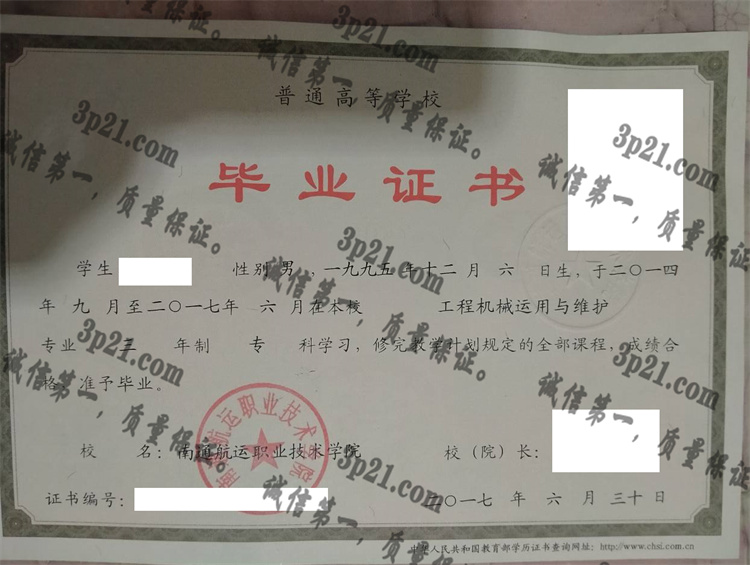 普通高等学校
毕业证书
学生 性别 男 ，一九九五 年十二 月 六 日生，于二〇一四
年 九 月至二〇一七年 六 月在本校 工程机械运用与维护
专业 三 年制 专 科学习，修完教学计划规定的全部课程，成绩合
格，准予毕业。
校 名：南通航运职业技术学院 校（院）长：
证书编号： 二〇一七 年 六 月 三十 日
中华人民共和国教育部学历证书查询网址：http://www.chsi.com.cn
南通航运职业技术学院
3p21.com
诚信第一，质量保证。
3p21.com
诚信第一，质量保证。
3p21.com
诚信第一，质量保证。
3p21.com
诚信第一，质量保证。
3p21.com
诚信第一，质量保证。
3p21.com
诚信第一，质量保证。
3p21.com
诚信第一，质量保证。
3p21.com
诚信第一，质量